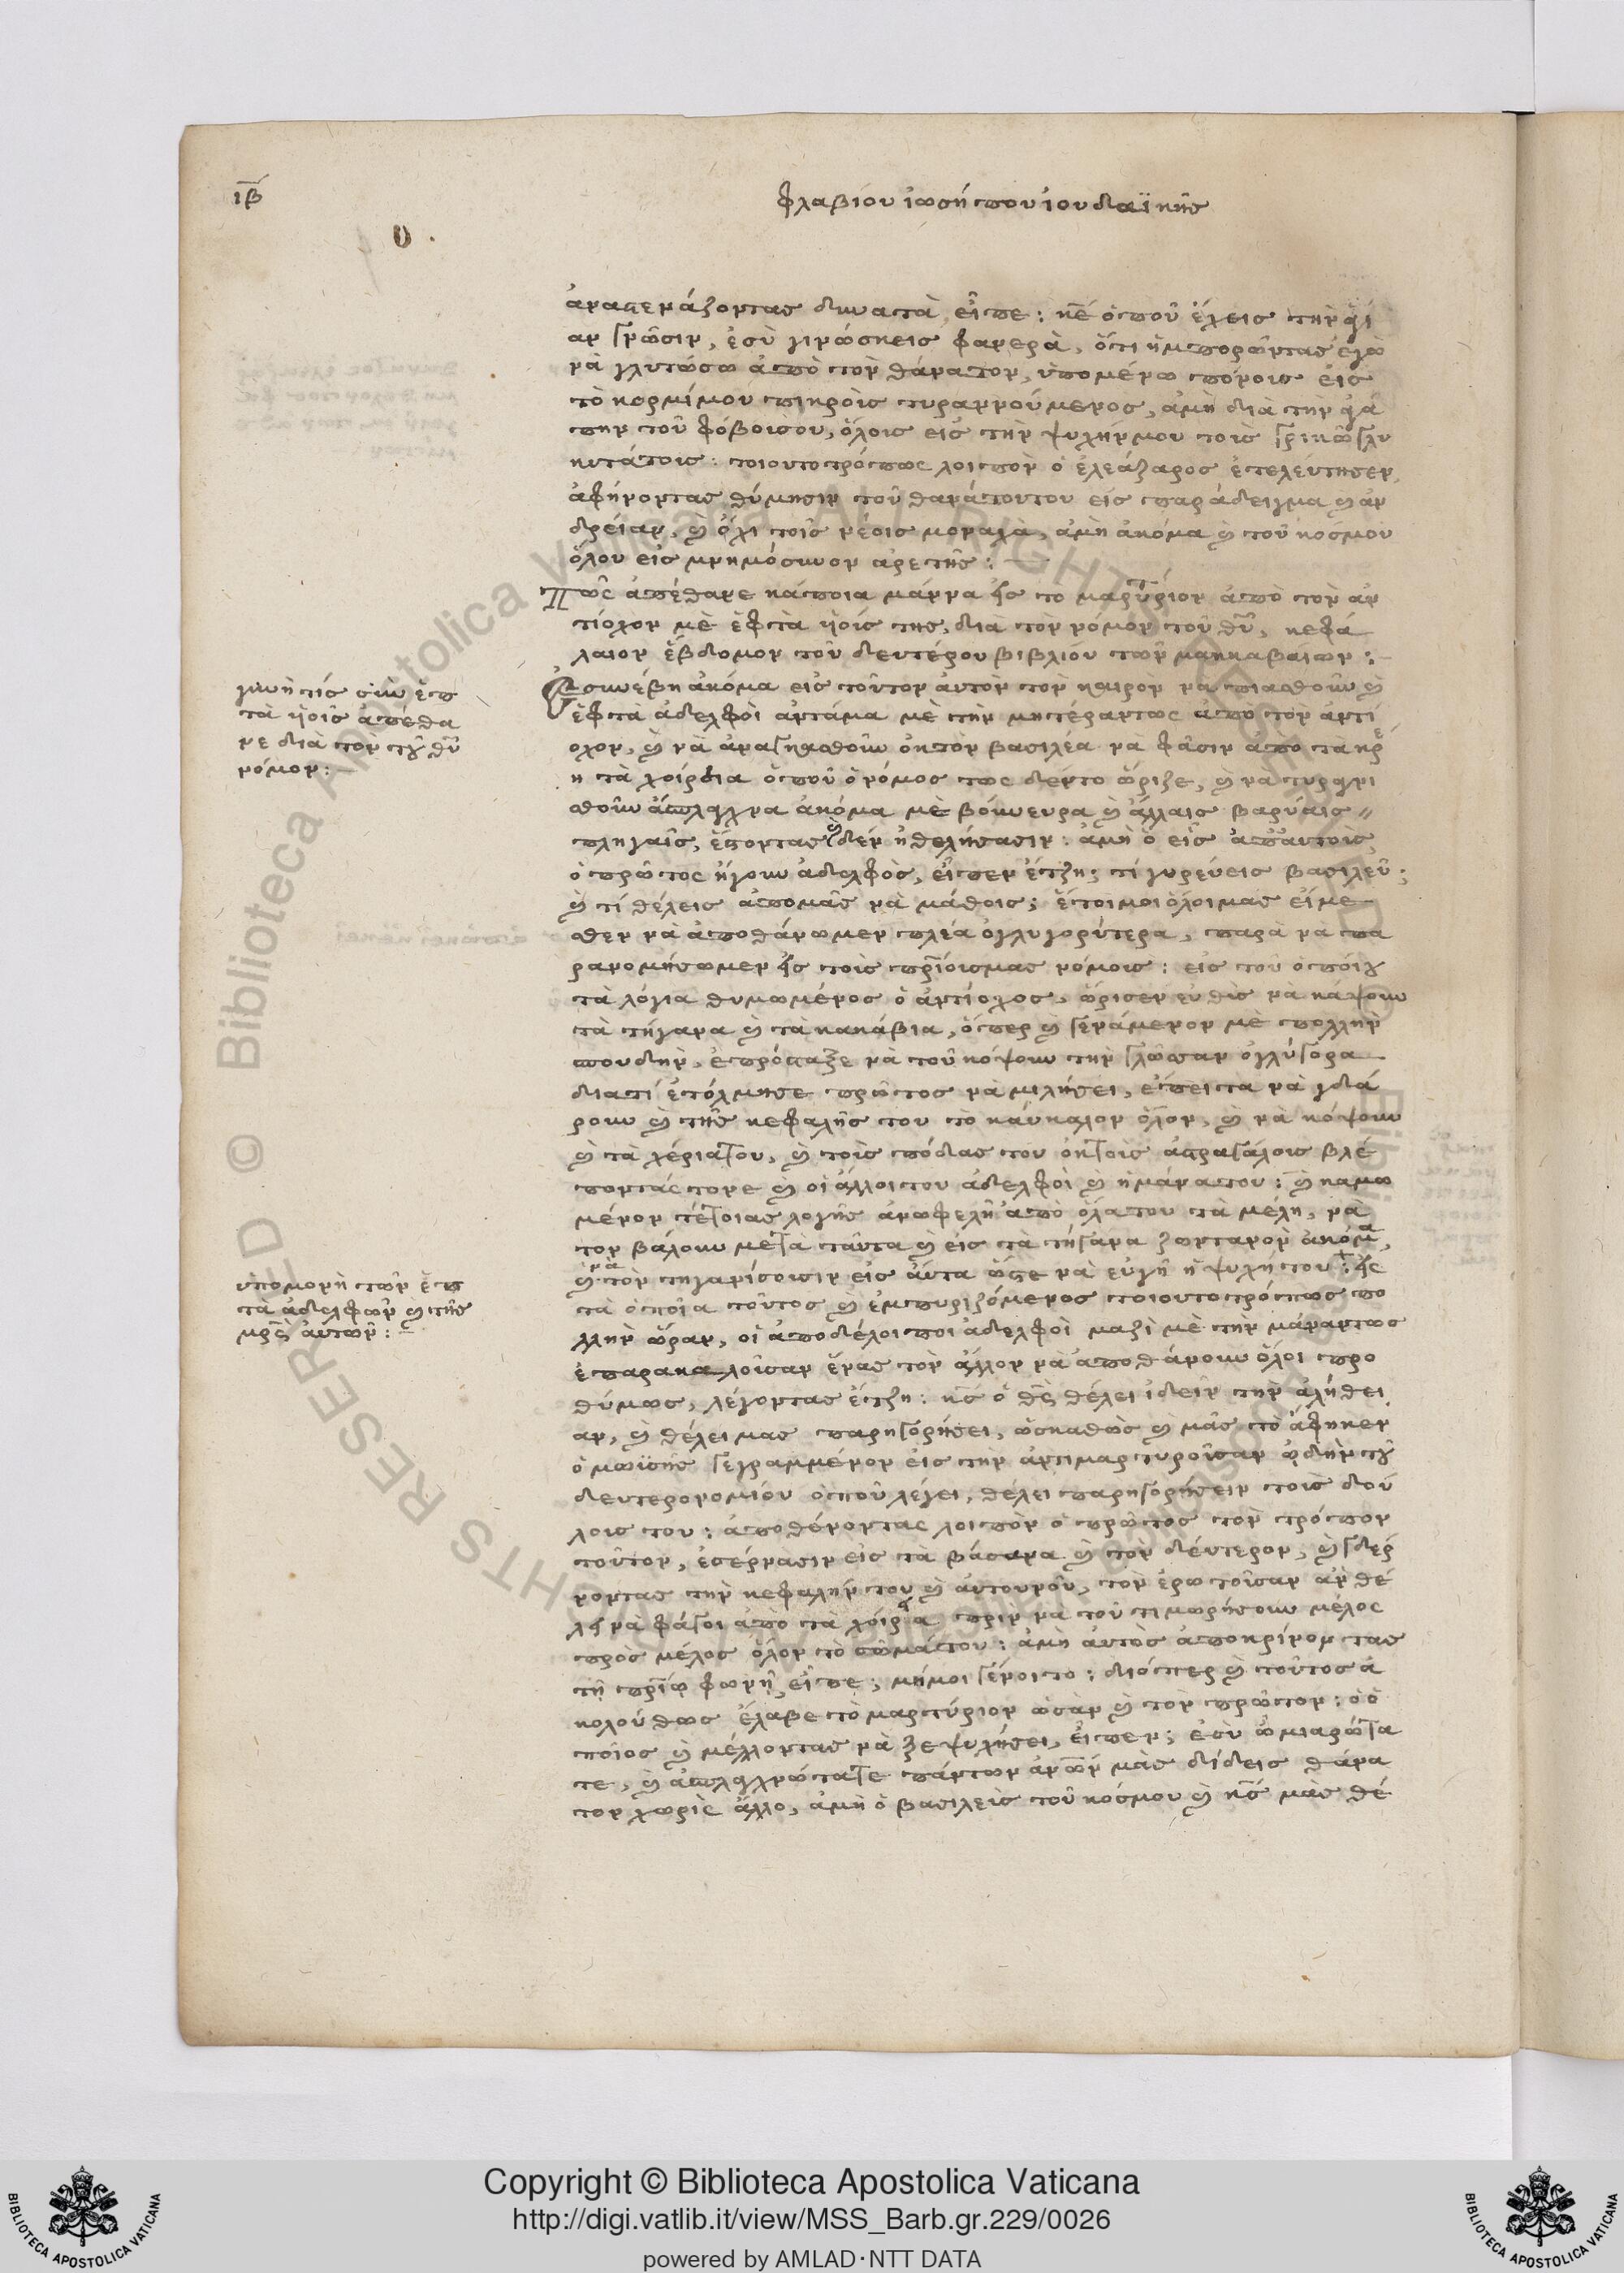 ιβ
φλαβίου ἰωσήπου ἰουδαϊκῆς
ἀναστενάζοντας δυνατὰ εἶπε: κε ὁποῦ ἔχεις τὴν ἁγί
αν γνῶσιν, ἐσὺ γινώσκεις φανερὰ, ὅτι ἠμπορῶντας ἐγὼ
νὰ γλυτώσω ἀπὸ τὸν θάνατον, ὑπομένω πόνοις εἰς
τὸ κορμίμου πικροὶς τυραννούμενος, ἀμὴ διὰ τὴν ἀγά
πην τοῦ φόβουσου, ὅλοις εἰς τὴν ψυχήνμου τοὶς γρικῶ γλυ
κυτάτοις: τοιουτοτρόπως λοιπὸν ὁ ἐλεάζαρος ἐτελεύτησεν,
ἀφήνοντας θύμησιν τοῦ θανάτουτου εἰς παράδειγμα καὶ ἀν
δρείαν, καὶ ὄχι τοῖς νέοις μοναχὰ, ἀμὴ ἀκόμα καὶ τοῦ κόσμου
ὅλου εἰς μνημόσυνον ἀρετῆς:
Πῶς ἀπέθανε κάποια μάννα εἰς τὸ μαρτύριον ἀπὸ τὸν ἀν
τίοχον μὲ ἑφτὰ ὑοίς της, διὰ τὸν νόμον τοῦ θῦ, κεφά
λαιον ἕβδομον τοῦ δευτέρου βιβλίου τῶν μακκαβαίων:
Εσυνέβη ἀκόμα εἰς τοῦτον ἀυτὸν τὸν καιρὸν νὰ πιασθοῦν καὶ
ἑφτὰ ἀδελφοὶ ἀντάμα μὲ τὴν μητέραντως ἀπὸ τὸν ἀντί
οχον, καὶ νὰ ἀναγκασθοῦν ἐκ τὸν βασιλέα νὰ φᾶσιν ἀπὸ τὰ κρέ
η τὰ χοίρεια ὁποῦ ὁ νόμος τως δέντο ὥριζε, καὶ νὰ τυραννι
σθοῦν ἄσπλαγχνα ἀκόμα μὲ βόυνευρα καὶ ἄλλαις βαρύαις
πληγαῖς, ἔστοντας καὶ δὲν ἠθελήσασιν: ἀμὴ ὁ εἷς ἀπαυτοὶς
ὁ πρῶτος ἤγουν ἀδελφὸς, εἶπεν ἔτζη; τί γυρεύεις βασιλεῦ;
καὶ τί θέλεις ἀπομᾶς νὰ μάθοις; ἕτοιμοι ὅλοιμας εἴμε
σθεν νὰ ἀποθάνωμεν πλεὰ ὀγλυγορύτερα, παρὰ νὰ πα
ρανομήσωμεν εἰς τοὶς πρίοιςμας νόμοις: εἰς τοῦ ὁποίου
τὰ λόγια θυμωμένος ὁ ἀντίοχος, ὥρισεν εὐθὶς νὰ κάψουν
τὰ τήγανα καὶ τὰ κακάβια, ὅπερ καὶ γενάμενον μὲ πολλὴν
σπουδὴν, ἐπρόσταξε νὰ τοῦ κόψουν τὴν γλῶσσαν ὀγλύγορα
διατί ἐτόλμησε πρῶτος νὰ μιλήσει, ἔπειτα νὰ γδά
ρουν καὶ τῆς κεφαλῆς του τὸ κάυκαλον ὅλον, καὶ νὰ κόψουν
καὶ τὰ χέριατου, καὶ τοὶς πόδας του ἐκ τοὶς ἀστραγάλοις βλέ
ποντάς τονε καὶ οἱ ἄλλοι του ἀδελφοὶ καὶ ἡ μάνατου: καὶ καμω
μένον τέτοιας λογῆς ἀνωφελῆ ἀπὸ ὅλα του τὰ μέλη, νὰ
τον βάλουν μετὰ ταῦτα καὶ εἰς τὰ τήγανα ζωντανὸν ἀκόμα,
καὶ νὰ τὸν τηγανίσουσιν εἰς ἀυτὰ ὥστε νὰ εὐγῆ ἡ ψυχή του: εἰς
τὰ ὁποῖα τοῦτος καὶ ἐμπυριζόμενος τοιουτοτρόπως πο
λλὴν ὥραν, οἱ ἀποδέλοιποι ἀδελφοὶ μαζὶ μὲ τὴν μάναντως
ἐπαρακαλοῦσαν ἕνας τὸν ἄλλον νὰ ἀποθάνουν ὅλοι προ
θύμως, λέγοντας ἔτζη: κς ὁ θς θέλει ἰδεῖν τὴν ἀλήθει
αν, καὶ θέλει μας παρηγορήσει, ὡσκαθὼς καὶ μᾶς τὸ ἄφηκεν
ὁ μωϋσῆς γεγραμμένον εἰς τὴν ἀντιμαρτυροῦσαν ὠδὴν τοῦ
δευτερονομίου ὁποῦ λέγει, θέλει παρηγορήσειν τοὶς δού
λοις του: ἀποθένοντας λοιπὸν ὁ πρῶτος τὸν τρόπον
τοῦτον, ἐσέρνασιν εἰς τὰ βάσανα καὶ τὸν δέυτερον, καὶ γδέρ
νοντας τὴν κεφαλήν του καὶ ἀυτουνοῦ, τὸν ἐρωτοῦσαν ἂν θέ
λῃ νὰ φάγοι ἀπὸ τὰ χοίρεια πρὶν νὰ τοῦ τιμωρήσουν μέλος
πρὸς μέλος ὅλον τὸ σῶμάτου: ἀμὴ ἀυτὸς ἀποκρίνοντας
τῇ πρίῳ φωνῇ εἶπε; μήμοι γένοιτο: διόπερ καὶ τοῦτος ἀ
κολούθως ἔλαβε τὸ μαρτύριον ὡσὰν καὶ τὸν πρῶτον: ὁ ὁ
ποῖος καὶ μέλλοντας νὰ ξεψυχήσει, εἶπεν; ἐσὺ ὦ μιαρώτα
τε, καὶ ἀσπλαγχνώτατε πάντων ἀνῶν μᾶς δίδεις θάνα
τον χωρὶς ἄλλο, ἀμὴ ὁ βασιλεὶς τοῦ κόσμου καὶ κς μᾶς θέ
γυνὴ τίς σὺν ἑπ
τὰ ὑοῖς ἀπέθα
νε διὰ τὸν τοῦ θῦ
νόμον:
ὑπομονὴ τῶν ἑπ
τὰ ἀδελφῶν καὶ τῆς
μρς ἀυτῶν:
Copyright © Biblioteca Apostolica Vaticana
http://digi.vatlib.it/view/MSS_Barb.gr.229/0026
powered by AMLAD·NTT DATA
BIBLIOTECA APOSTOLICA VATICANA
BIBLIOTECA APOSTOLICA VATICANA